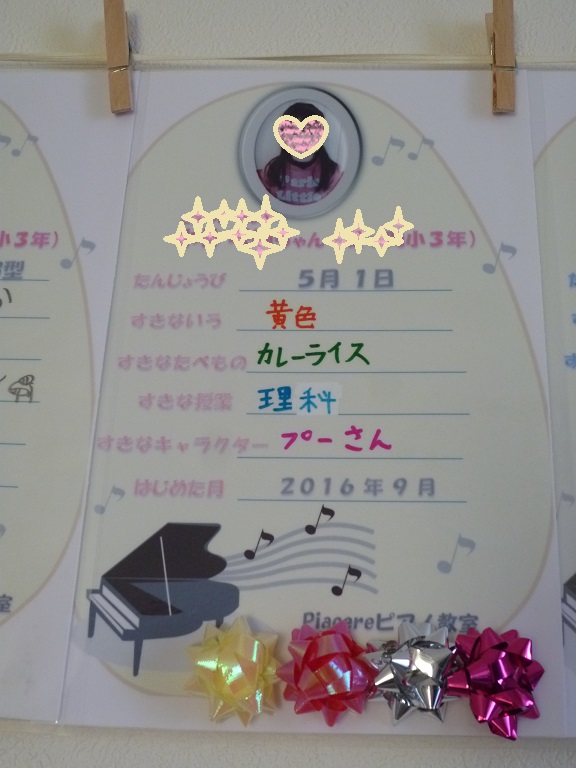 小3年)
ちゃん 小3年)
型
い
たんじょうび 5月1日
すきないろ 黄色
すきなたべもの カレーライス
すきな授業 理科
すきなキャラクター プーさん
はじめた月 2016年9月
Piacereピアノ教室
室